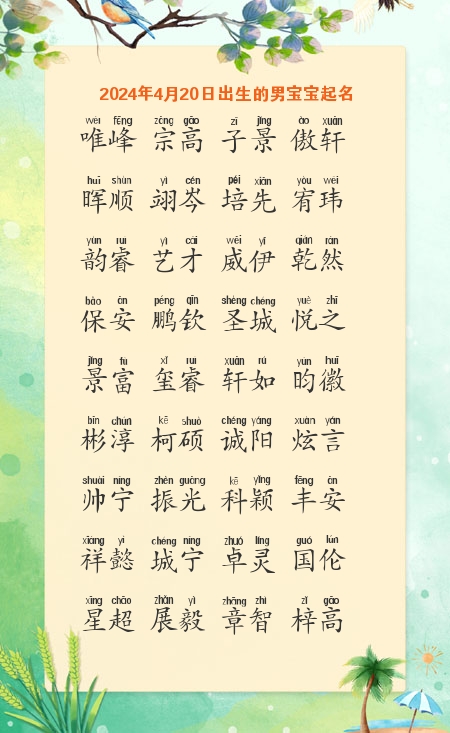 2024年4月20日出生的男宝宝起名
wéi fēng zōng gāo zǐ jǐng ào xuān
唯峰 宗高 子景 傲轩
huī shùn yì cén péi xiān yòu wěi
晖顺 翊岑 培先 宥玮
yùn ruì yì cái wēi yī qián rán
韵睿 艺才 威伊 乾然
bǎo ān péng qīn shèng chéng yuè zhī
保安 鹏钦 圣城 悦之
jǐng fù xǐ ruì xuān rú yún huī
景富 玺睿 轩如 昀徽
bīn chún kē shuò chéng yáng xuàn yán
彬淳 柯硕 诚阳 炫言
shuài níng zhèn guāng kē yǐng fēng ān
帅宁 振光 科颖 丰安
xiáng yì chéng níng zhuó líng guó lún
祥懿 城宁 卓灵 国伦
xīng chāo zhǎn yì zhāng zhì zǐ gāo
星超 展毅 章智 梓高